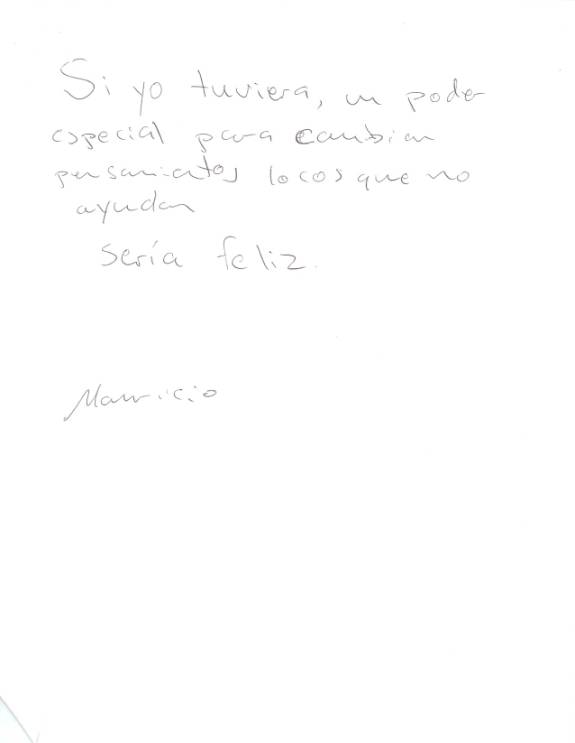 Si yo tuviera, un poder
especial para cambiar
pensamientos locos que no
ayudan
sería feliz.
Mauricio